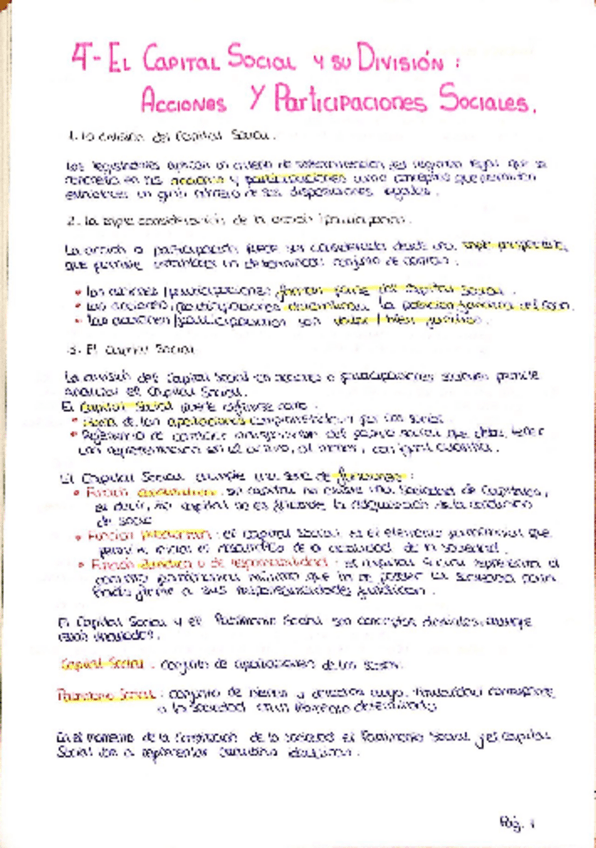 4- El Capital Social y su División:
Acciones y Participaciones Sociales.
1. La división del Capital Social.
concreta en las acciones y participaciones como conceptos que permiten
2. La triple consideración de la acción/participación.
La acción o participación puede ser considerada desde una triple perspectiva,
que permite establecer un determinado conjunto de
• Las acciones/participaciones forman parte del Capital Social.
• Las acciones/participaciones la posición jurídica del socio.
• Las acciones/participaciones son valor/bien jurídico.
3. El Capital Social
La división del Capital Social en acciones o participaciones sociales permite
analizar el Capital Social.
El Capital Social puede definirse como:
• Suma de las aportaciones comprometidas por los socios.
• Referencia de carácter del pasivo social que debe tener
una representación en el activo, al menos, con igual cuantía.
El Capital Social cumple una serie de funciones:
• Función : sin capital no existe una Sociedad de Capitales,
es decir, sin capital no es posible la adquisición de la condición
de socio
• Función productiva: el Capital Social es el elemento patrimonial que
permite iniciar el desarrollo de la actividad de la sociedad.
• Función de responsabilidad: el Capital Social representa el
mínimo que ha de poseer la sociedad como
fondo frente a sus responsabilidades jurídicas.
El Capital Social y el Patrimonio Social son conceptos distintos, aunque
estén vinculados.
Capital Social: conjunto de aportaciones de los socios.
Patrimonio Social: conjunto de bienes y derechos cuya titularidad corresponde
a la sociedad en un momento determinado
En el momento de la constitución de la sociedad el Patrimonio Social y el Capital
Social van a representar cuantías idénticas.
Pág. 1